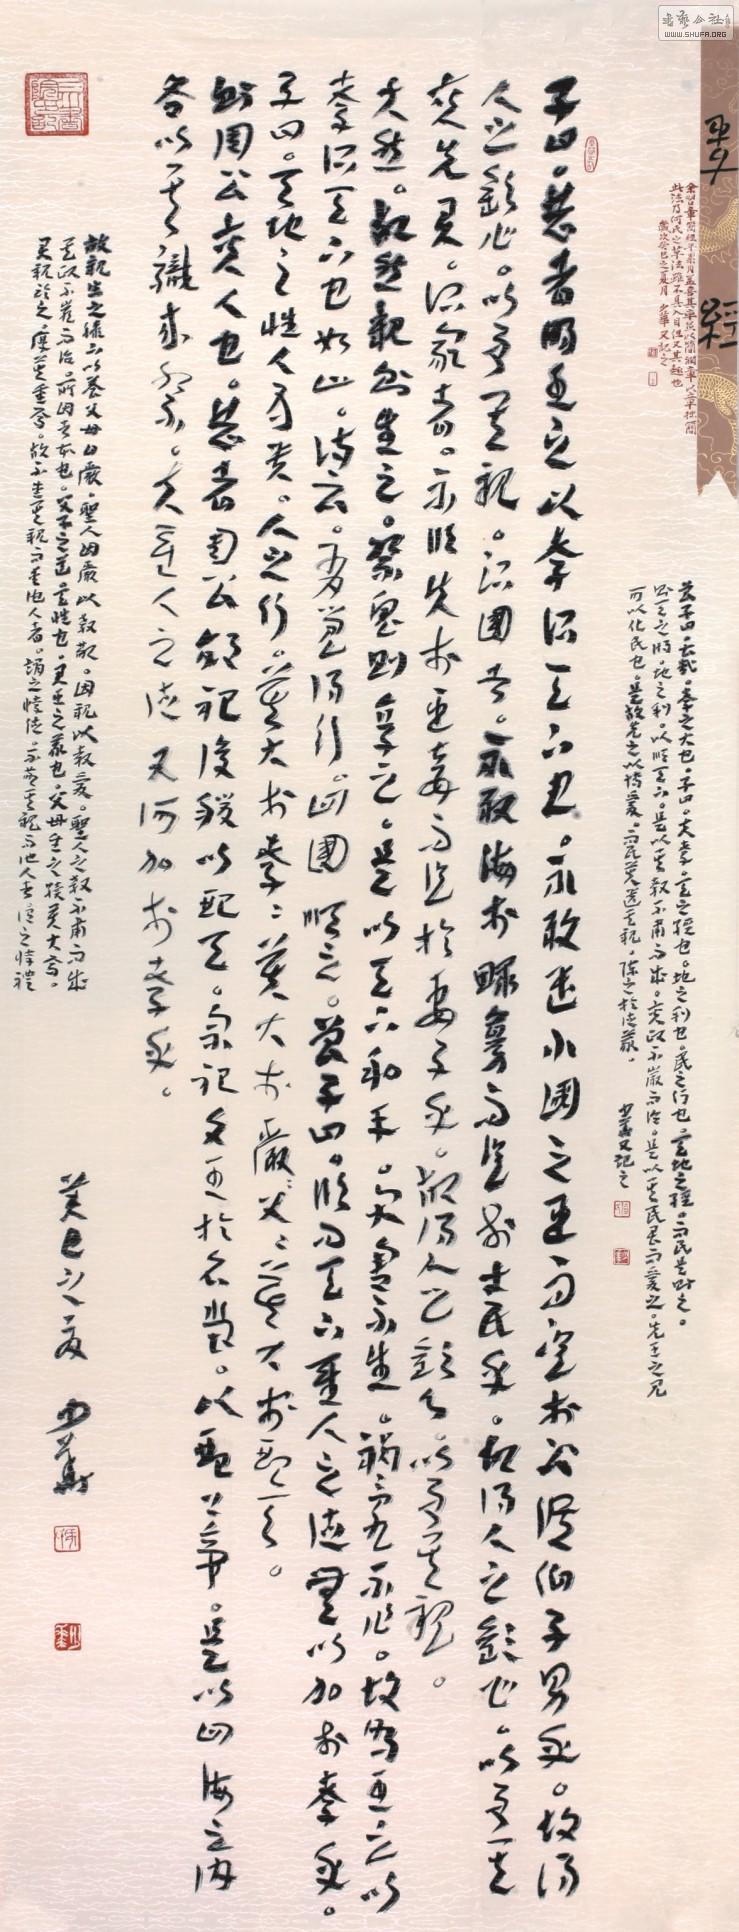 書藝公社
WWW.SHUFA.ORG
孝經
此法乃何氏之草法雖不具入目但又其趣也
歲次癸巳之夏月 少華又記之
曾子曰。甚哉。孝之大也。子曰。夫孝。天之經也。地之利也。民之行也。天地之經。而民是則之。
則天之時。地之利。以順天下。是以其教不肅而成。其政不嚴而治。是以其民畏而愛之。先王之見
可以化民也。是故先之以博愛。而民莫遺其親。陳之於德義。 少華又記之
子曰。昔者明王之以孝治天下也。不敢遺小國之臣而況於公侯伯子男乎。故得
人之歡心。以事其親。治國者。不敢侮於鰥寡而況於士民乎。故得人之歡心。以事其
先君。治家者。不敢失於臣妾而況於妻子乎。故得人之歡心。以事其親。
夫然。故然親則生之。祭鬼則享之。是以天下和平。災害不生。禍亂不作。故明王之以
孝治天下也如此。詩云。有覺德行。四國順之。曾子曰。敢問天下聖人之德無以加於孝乎。
子曰。天地之性人為貴。人之行。莫大於孝。孝莫大於嚴父。父莫大於配天。
則周公其人也。昔者周公郊祀后稷以配天。宗祀文王於明堂。以配上帝。是以四海之內
各以其職來祭。夫聖人之德又何加於孝乎。
故親生之膝下以養父母曰嚴。聖人因嚴以教敬。因親以教愛。聖人之教不肅而成
其政不嚴而治。所因者本也。父子之道天性也。君臣之義也。父母生之續莫大焉。
君親臨之。厚莫重焉。故不愛其親而愛他人者。謂之悖德。不敬其親而他人者謂之悖禮
癸巳之夏 少華